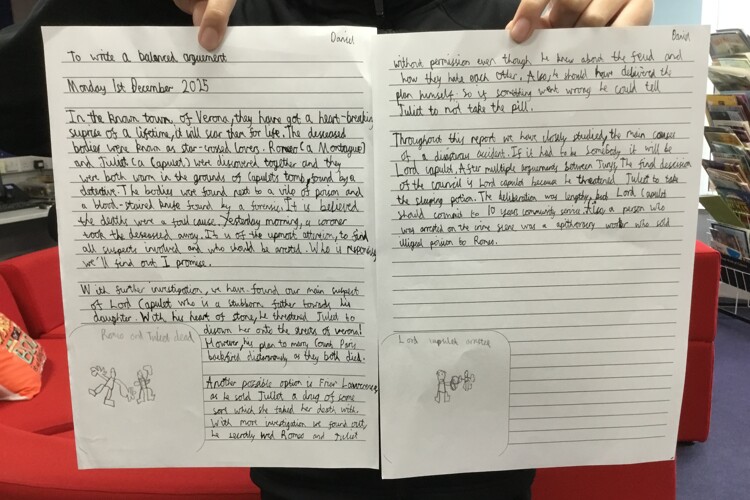 Daniel
To write a balanced arguement
Monday 1st December 2025
In the known town, of Verona, they have got a heart-breaking
suprise of a lifetime, it will scar them for life. The deseased
bodies were known as star-crossed lovers. Romeo (a Montague)
and Juliet (a Capulet) were discovered together and they
were both worn in the grounds of capulets tomb, found by a
detective. The bodies were found next to a vile of poison and
a blood-stained knife found by a forensic. It is believed
the deaths were a fall cause. Yesterday morning, a coroner
took the deseased away. It is of the upmost attention, to find
all suspects involved and who should be arrested. Who is
we'll find out I promise.
With further investigation, we have found our main suspect
of Lord Capulet who is a stubborn father towards his
daughter. With his heart of stone, he threatened Juliet to
disown her onto the streets of verona!
However, his plan to marry Count Paris
backfired disasterously as they both died.
Another possible option is Friar Lawrence,
as he sold Juliet a drug of some
sort which she faked her death with.
With more investigation we found out,
he secretly wed Romeo and Juliet
Romeo and Juliet dead
Daniel
without permission even though he knew about the feud and
how they hate each other. Also, he should have delivered the
plan himself. So if something went wrong he could tell
Juliet to not take the pill.
Throughout this report we have closely studied the main causes
of a disastrous accident. If it had to be somebody it will be
Lord capulet. After multiple arguments between The final descision
of the council is Lord capulet because he threatened Juliet to take
the sleeping potion. The deliberation was lengthy, but Lord Capulet
should commit to 10 years community service. Also a person who
was arrested on the crime scene was a apothecary worker who sold
illigeal poison to Romeo.
Lord capulet arrested